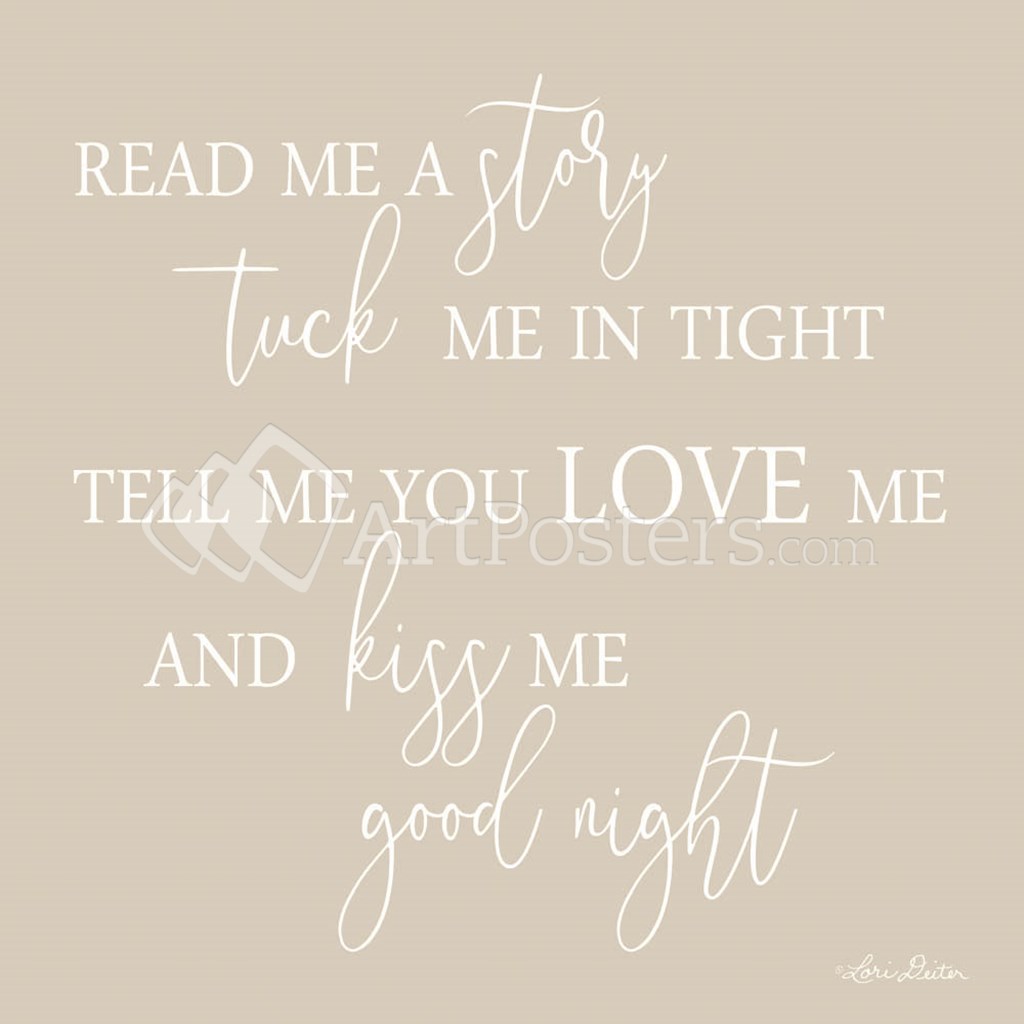 READ ME A story
tuck ME IN TIGHT
TELL ME YOU LOVE ME
ArtPosters.com
AND kiss ME
good night
©Lori Deiter